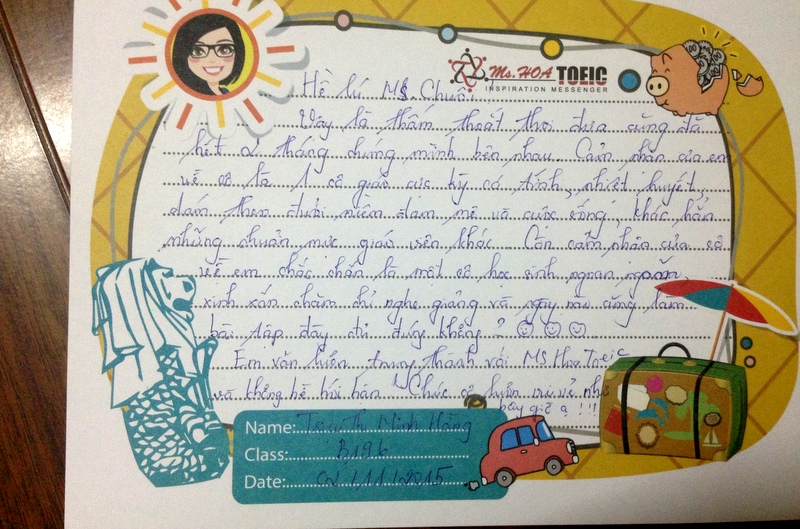 Ms. HOA TOEIC
INSPIRATION MESSENGER
Hề lú Ms. Chuối
Vậy là thấm thoắt thoi đưa cũng đã
hết 2 tháng chúng mình bên nhau. Cảm nhận của em
về cô là 1 cô giáo cực kỳ cá tính, nhiệt huyết,
dám theo đuổi niềm đam mê và cuộc sống, khác hẳn
những chuẩn mực giáo viên khác. Còn cảm nhận của cô
về em chắc chắn là một cô học sinh ngoan ngoãn,
xinh xắn chăm chỉ nghe giảng và ngày nào cũng làm
bài tập đầy đủ đúng không?
Em vẫn luôn trung thành với Ms Hoa Toeic
và không hề hối hận. Chúc cô luôn vui vẻ như
bây giờ ạ !!!
Name: Thị Minh Hằng
Class: B196
Date: 02/11/2015